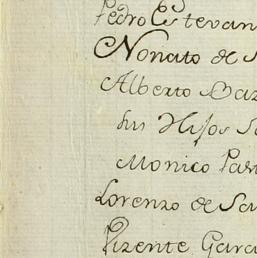 Pedro Estevan
Nonato de
Alberto Baz
sus Hijos
Monico Par
Lorenzo de
Vizente Garc